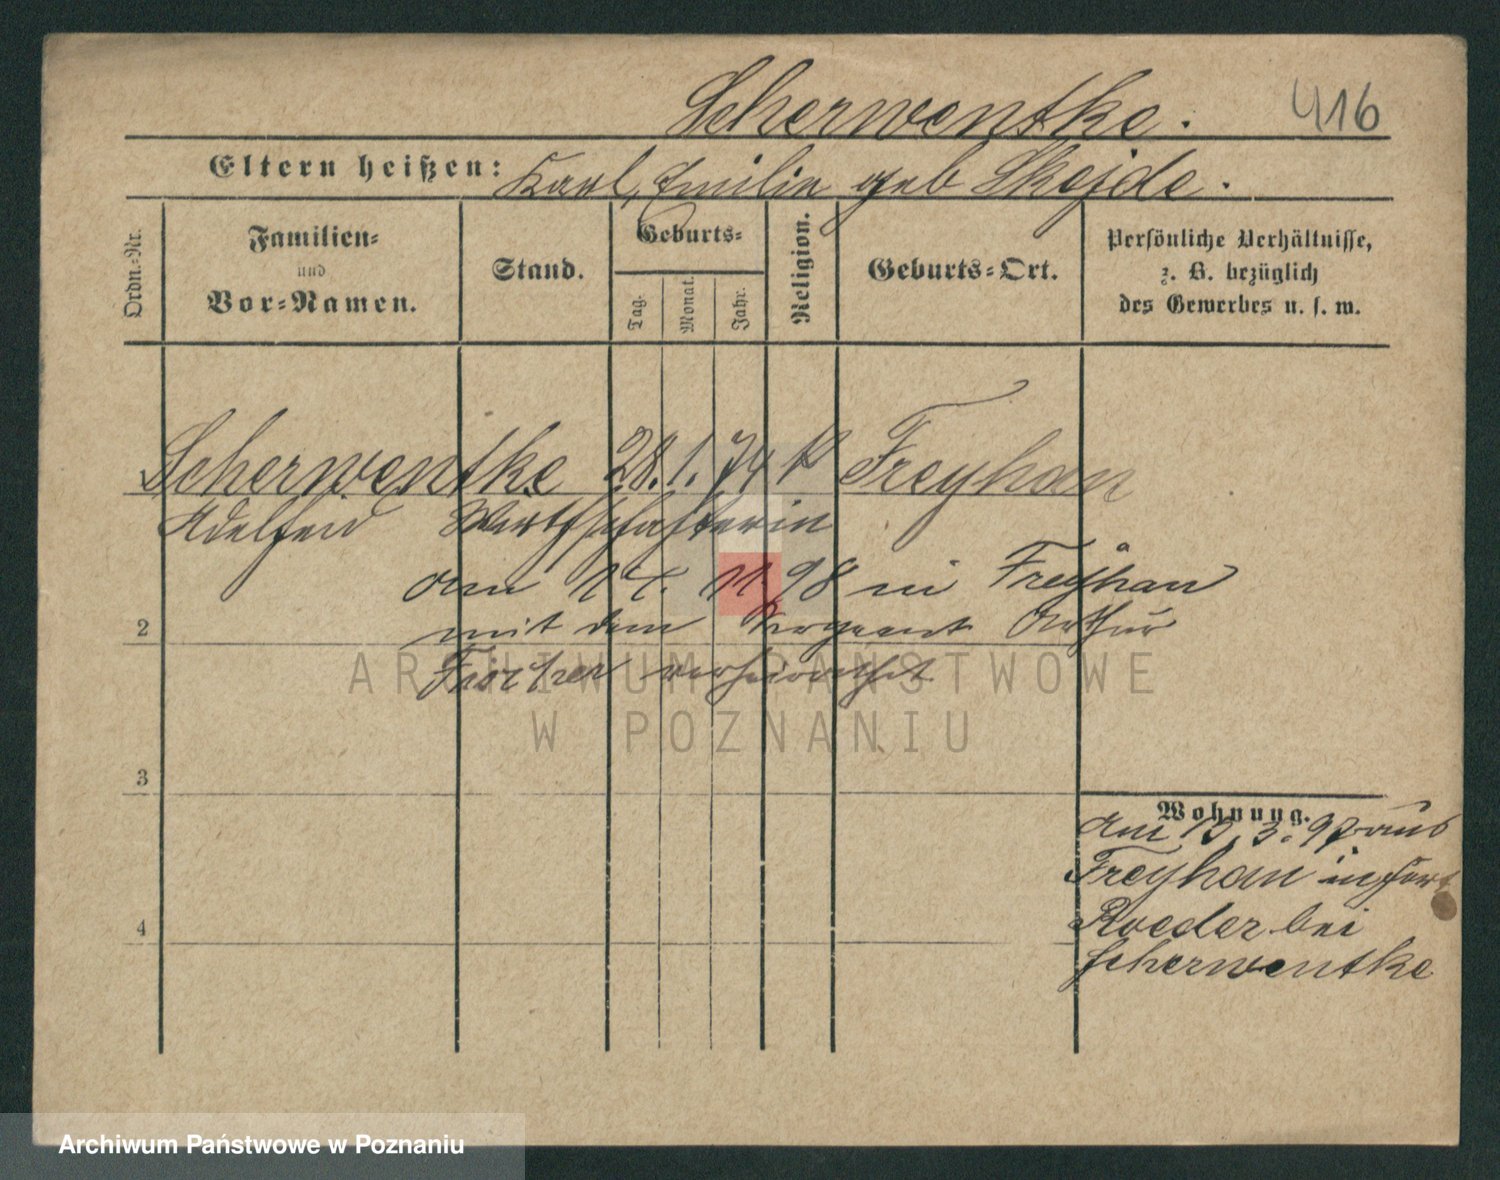 Scherwentke.
416
Eltern heißen: Karl, Emilie geb Skejde.
Ordn.-Nr.
Familien-
und
Vor-Namen.
Stand.
Geburts-
Tag.
Monat.
Jahr.
Religion.
Geburts-Ort.
Persönliche Verhältnisse,
z. B. bezüglich
des Gewerbes u. s. w.
Scherwentke 28. 1. 74 K Freyhan
Adelheid Wirthschafterin
am 11. 98 in Freyhan
2
mit dem Sergeant Arthur
verheirathet
3
4
Wohnung.
Am 3. 97 aus
Freyhan in Fort
Roeder bei
Scherwentke
ARCHIWUM PAŃSTWOWE
W POZNANIU
Archiwum Państwowe w Poznaniu